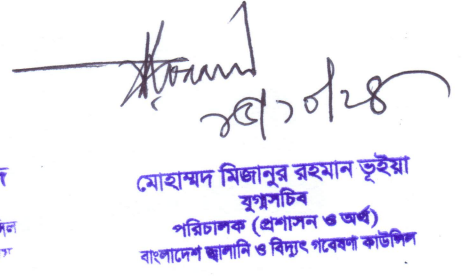 মোহাম্মদ মিজানুর রহমান ভূইয়া
যুগ্মসচিব
পরিচালক (প্রশাসন ও অর্থ)
বাংলাদেশ জ্বালানি ও বিদ্যুৎ গবেষণা কাউন্সিল